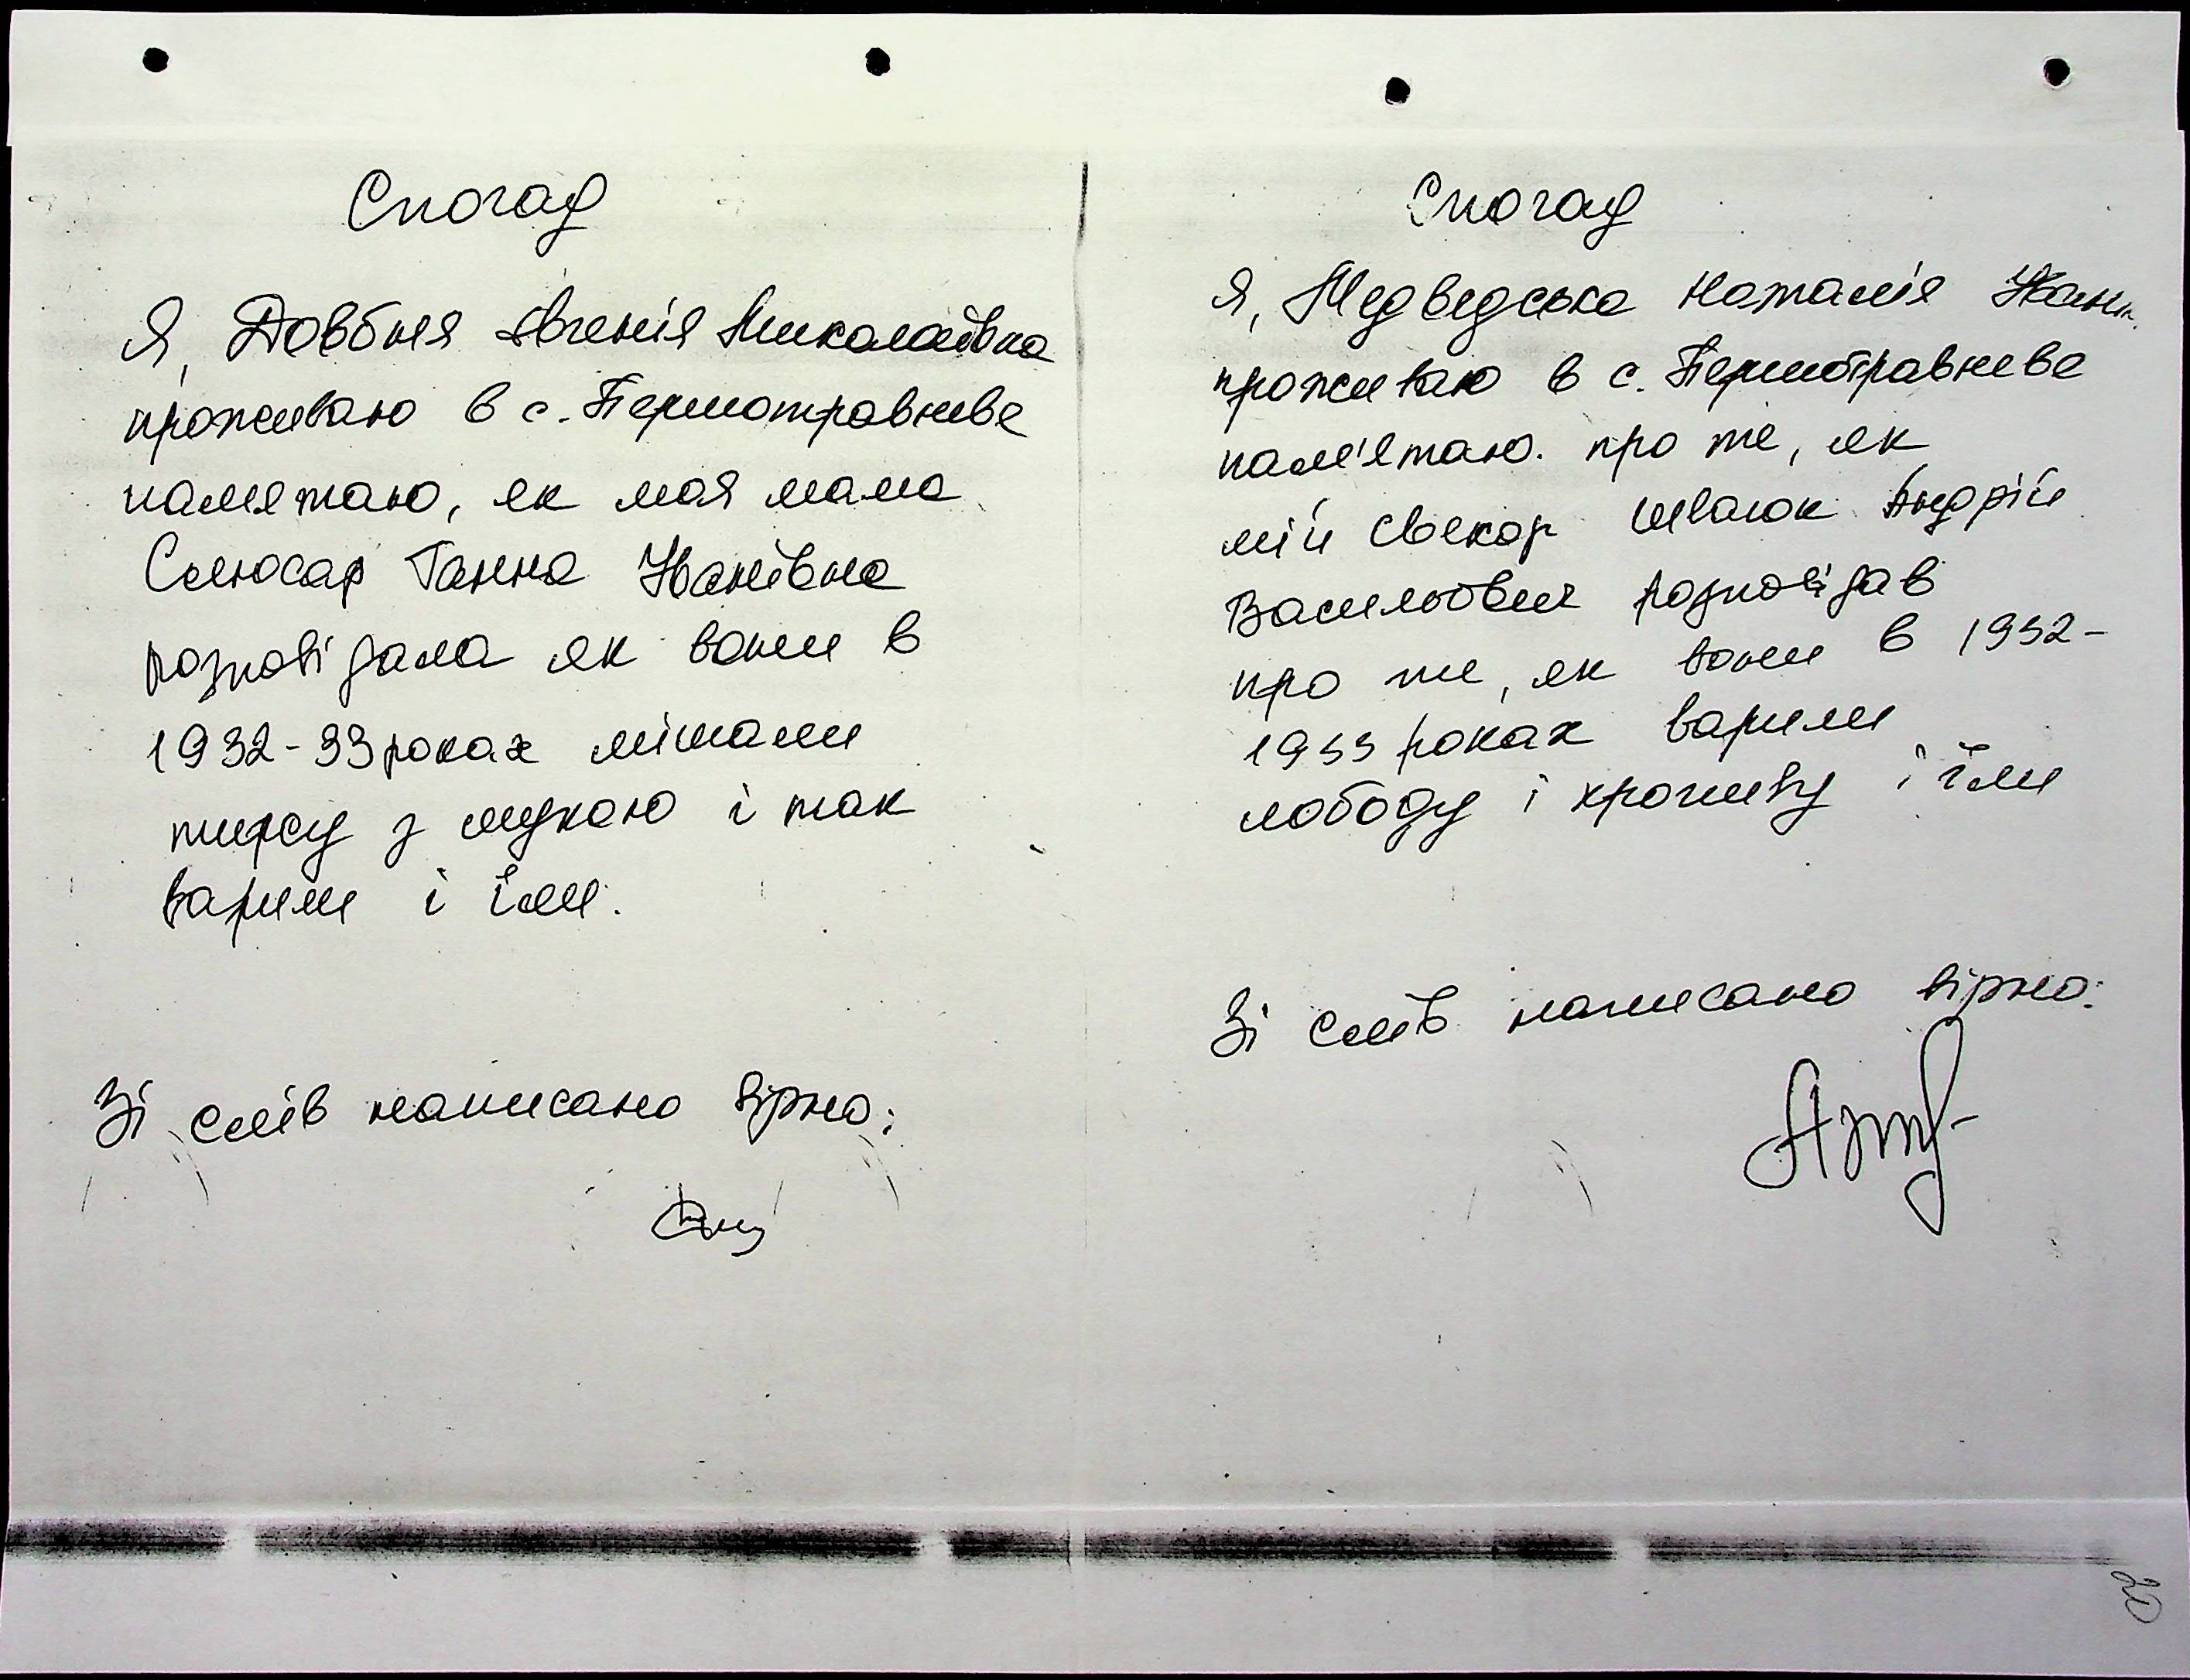 Спогад
Я, Довбня Євгенія Миколаївна
проживаю в с. Першотравневе
памятаю, як моя мама
Слюсар Ганна Іванівна
розповідала як вони в
1932-33 роках мішали
тирсу з мукою і так
варили і їли.
Зі слів написано вірно:
Спогад
Я, Медведська Наталія Іван.
проживаю в с. Першотравневе
пам'ятаю. про те, як
мій свекор Андрій
Васильович розповідав
про те, як вони в 1932-
1933 роках варили
лободу і кропиву і їли
Зі слів написано вірно:
20